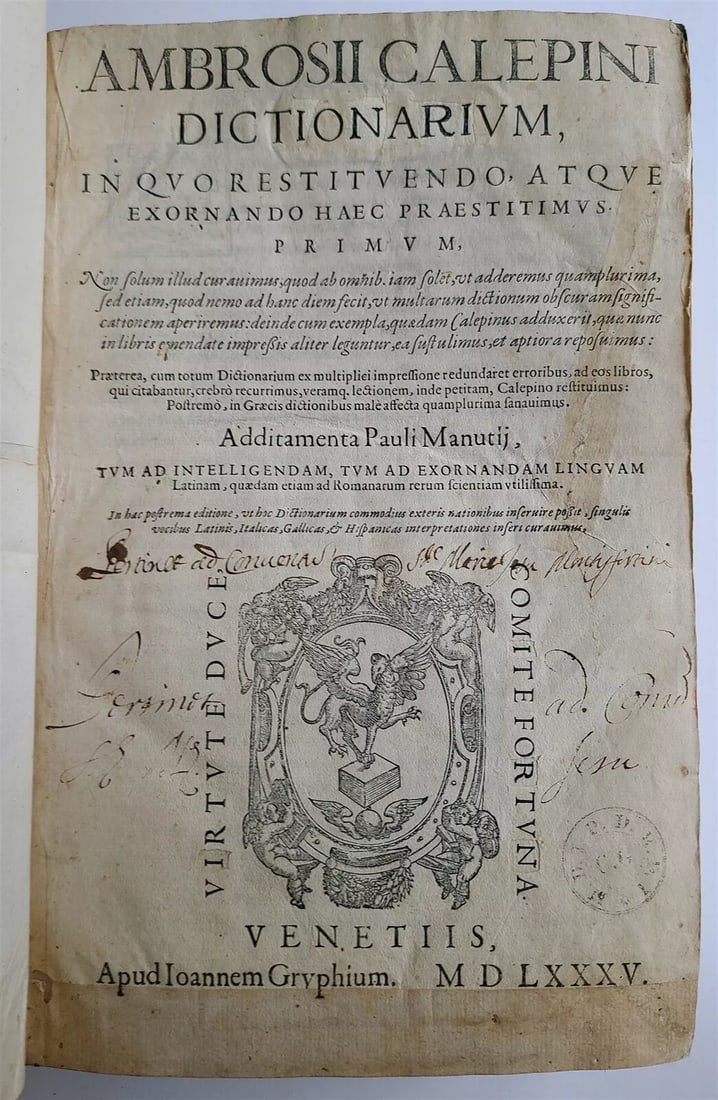 AMBROSII CALEPINI
DICTIONARIVM,
IN QVO RESTITVENDO, ATQVE
EXORNANDO HAEC PRAESTITIMVS.
PRIMVM,
Non solum illud curauimus, quod ab omnib. iam solet, vt adderemus quamplurima,
sed etiam, quod nemo ad hanc diem fecit, vt multarum dictionum obscuram signifi-
cationem aperiremus: deinde cum exempla, quædam Calepinus adduxerit, quæ nunc
in libris emendate impreßis aliter leguntur, ea sustulimus, et aptiora reposuimus:
Præterea, cum totum Dictionarium ex multiplici impressione redundaret erroribus, ad eos libros,
qui citabantur, crebrò recurrimus, veramq. lectionem, inde petitam, Calepino restituimus:
Postremò, in Græcis dictionibus malè affecta quamplurima sanauimus.
Additamenta Pauli Manutij,
TVM AD INTELLIGENDAM, TVM AD EXORNANDAM LINGVAM
Latinam, quædam etiam ad Romanarum rerum scientiam vtilissima.
In hac postrema editione, vt hoc Dictionarium commodius exteris nationibus inseruire possit, singulis
vocibus Latinis, Italicas, Gallicas, & Hispanicas interpretationes inseri curauimus.
Pertinet ad Conuentū
VIRTVTE DVCE
COMITE FORTVNA
ad.
Jesu
VENETIIS,
Apud Ioannem Gryphium. MDLXXXV.